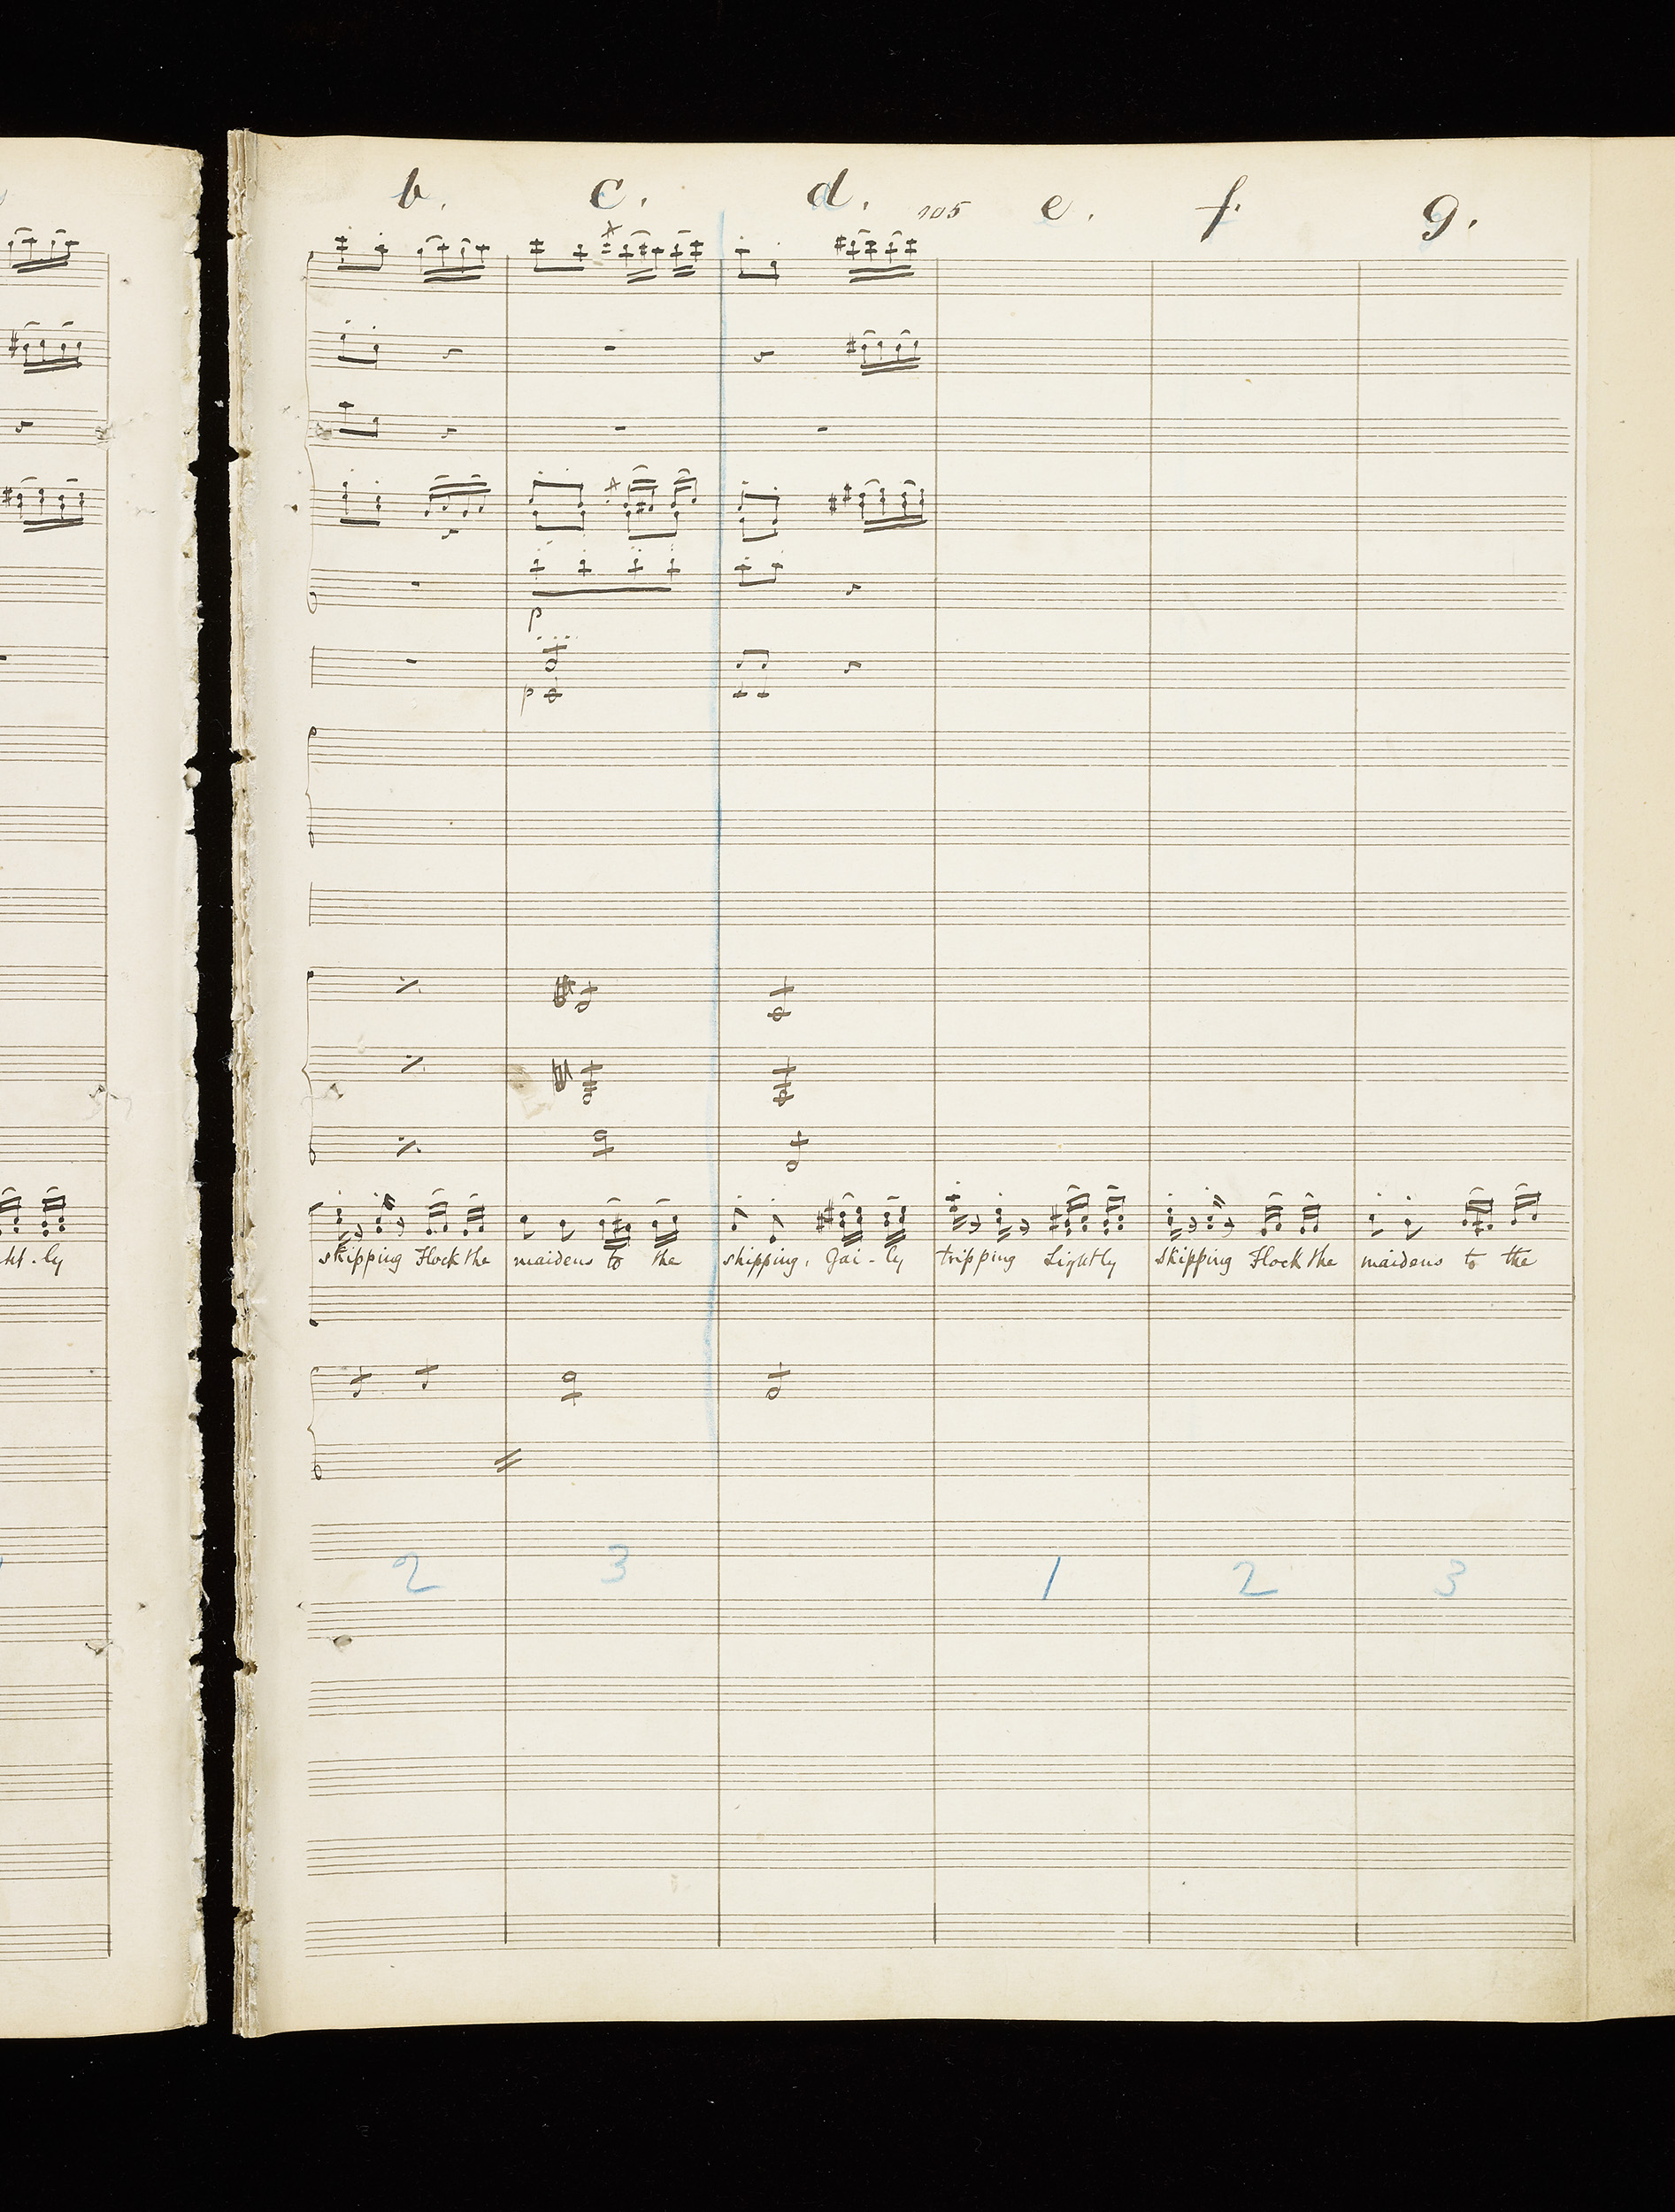 b. c. d. 105 e. f. g.
p
p
ht-ly skipping Flock the maidens to the skipping, Gai-ly tripping Lightly skipping Flock the maidens to the
2 3 1 2 3